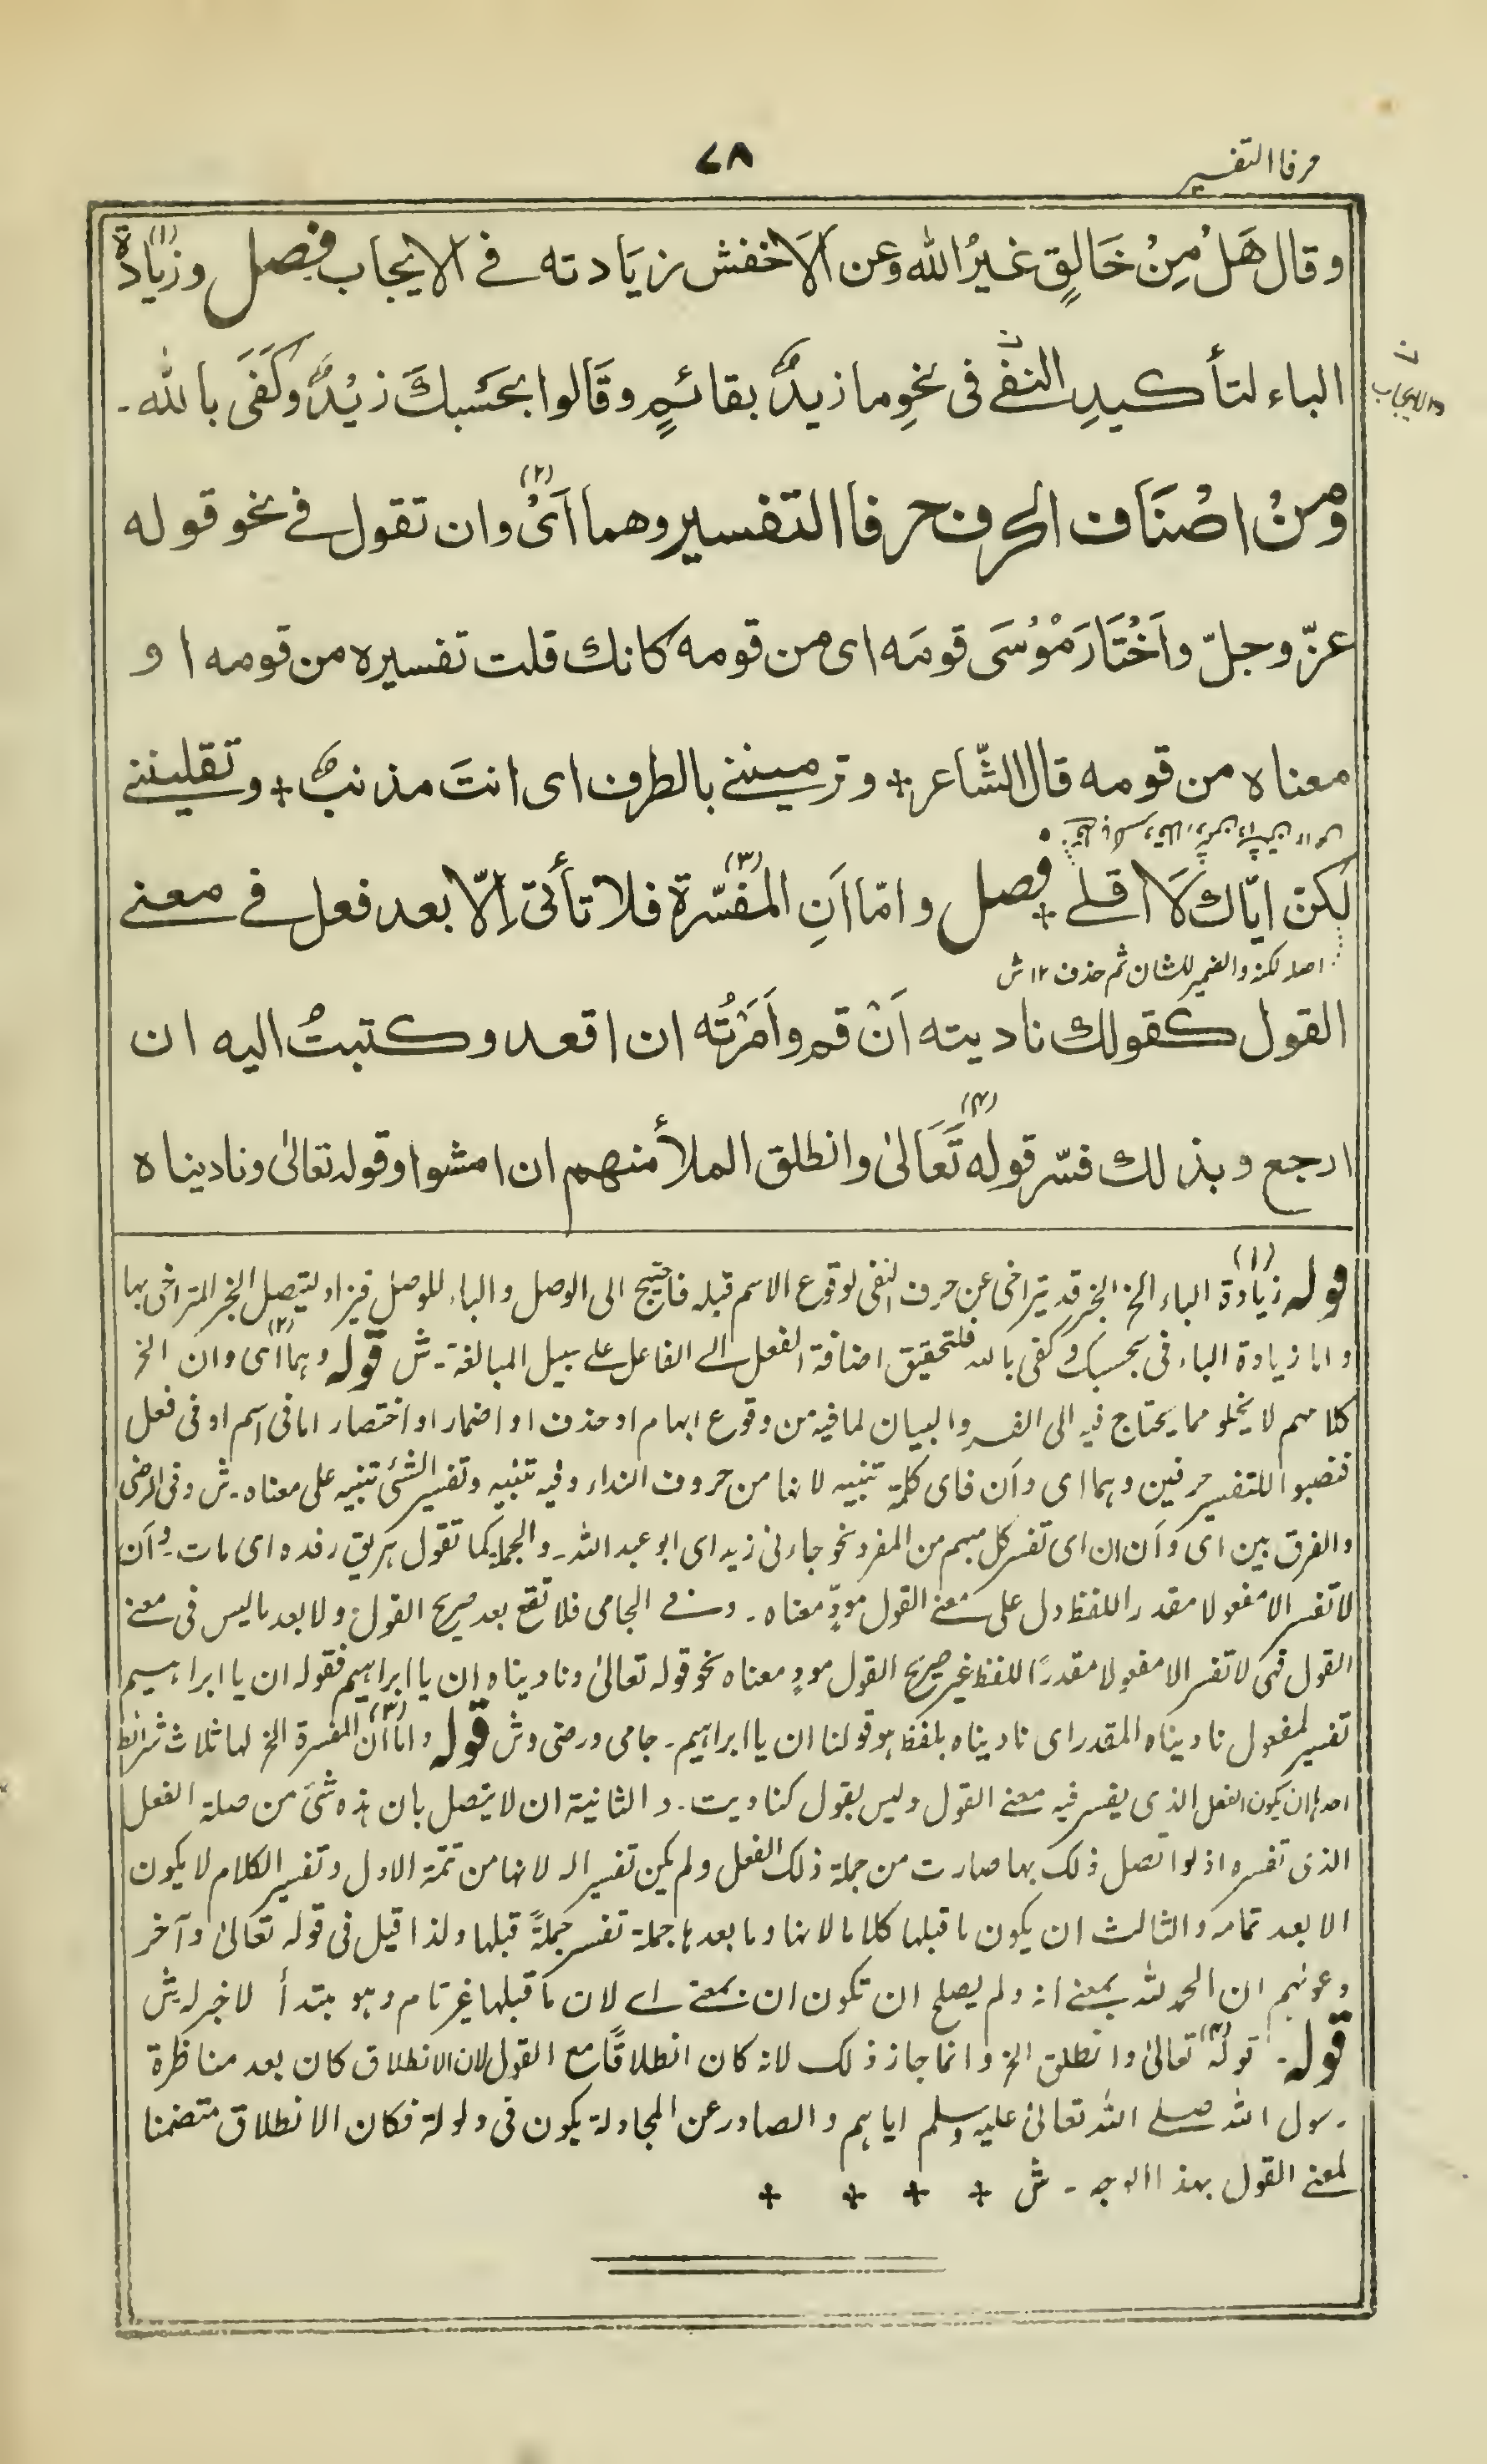 حرفا التفسير
٧٨
وقال هَلْ مِنْ خَالِقٍ غيرُ الله وعن الاَخفش زيَادته فے الايجاب فصل وزيَادة (١)
الباء لتأكيدِ النفے فى نحوِ ما زيدٌ بقائمٍ وقَالوا بحَسبكَ زيْدٌ وكَفَى بالله۔
والايجاب
ومِنْ اصْنَاف الحرف حرفا التفسير وهما اَىْ (٢) وان تقول فے نحو قوله
عزّ وجلّ واَخْتَارَ مُوْسَى قومَه اى من قومه كانك قلت تفسيره من قومه او
معناه من قومه قال الشّاعر + وترميننے بالطرف اى انتَ مذنبٌ + وتقليننے
لكنّ ايّاك لاَ اقلے + فصل وامّا اَنِ المفسّرة (٣) فلا تأتى اِلّا بعد فعل فے معنے
اصله لكنه والضمير للشان ثم حذف ١٢ ش
القول كقولك ناديته اَنْ قم واَمَرْتُه ان اقعد وكتبتُ اليه ان
ارجع وبذلك فسّر قوله (٤) تَعَالىٰ وانطلق الملأ منهم ان امشوا وقوله تعالىٰ وناديناه
قوله (١) زيادة الباء الخ الخبر قد يتراخى عن حرف النفى لوقوع الاسم قبله فاحتيج الى الوصل والباء للوصل فيزاد ليتصل الخبر المتراخى بها
واما زيادة الباء فى بحسبك وكفى بالله فلتحقيق اضافة الفعل الے الفاعل علے سبيل المبالغة۔ ش قوله (٢) وهما اى وان الخ
كلامهم لا يخلو مما يحتاج فيه الى الفسر والبيان لما فيه من وقوع ابهام او حذف او اضمار او اختصار اما فى اسم او فى فعل
فنصبوا للتفسير حرفين وهما اى واَن فاى كلمة تنبيه لانها من حروف النداء وفيه تنبيه وتفسير الشئ تنبيه على معناه۔ ش وفى الرضى
والفرق بين اى واَن ان اى تفسر كل مبهم من المفرد نحو جاءنى زيد اى ابو عبد الله۔ والجملة كما تقول هريق رفده اى مات۔ واَن
لا تفسر الا مفعولا مقدر اللفظ دل على معنے القول مودٍّ معناه۔ وفے الجامى فلا تقع بعد صريح القول ولا بعد ما ليس فى معنے
القول فهى لا تفسر الا مفعولا مقدرًا للفظ غير صريح القول مودٍ معناه نحو قوله تعالىٰ وناديناه ان يا ابراهيم فقوله ان يا ابراهيم
تفسير لمفعول ناديناه المقدر اى ناديناه بلفظ هو قولنا ان يا ابراهيم۔ جامى ورضى وش قوله (٣) واما اَن المفسرة الخ لها ثلاث شرائط
احدها ان يكون الفعل الذى يفسر فيه معنے القول وليس بقول كناديت۔ والثانية ان لا يتصل بان هذه شئ من صلة الفعل
الذى تفسره اذ لو اتصل ذلك بها صارت من جملة ذلك الفعل ولم يكن تفسيرا له لانها من تتمة الاول وتفسير الكلام لا يكون
الا بعد تمامه والثالث ان يكون ما قبلها كلاما لانها وما بعدها جملة تفسر جملةً قبلها ولذا قيل فى قوله تعالىٰ وآخر
دعوٰنهم ان الحمد لله بمعنے انه ولم يصلح ان تكون ان بمعنے اے لان ما قبلها غير تام وهو مبتدأ لا خبر له ش
قوله۔ قوله (٤) تعالىٰ وانطلق الخ وانما جاز ذلك لانه كان انطلاقًا مع القول لان الانطلاق كان بعد مناظرة
رسول الله صلے الله تعالىٰ عليه وسلم اياهم والصادر عن المجادلة يكون فى ولولة فكان الانطلاق متضمنا
لمعنے القول بهذا الوجه۔ ش + + + +